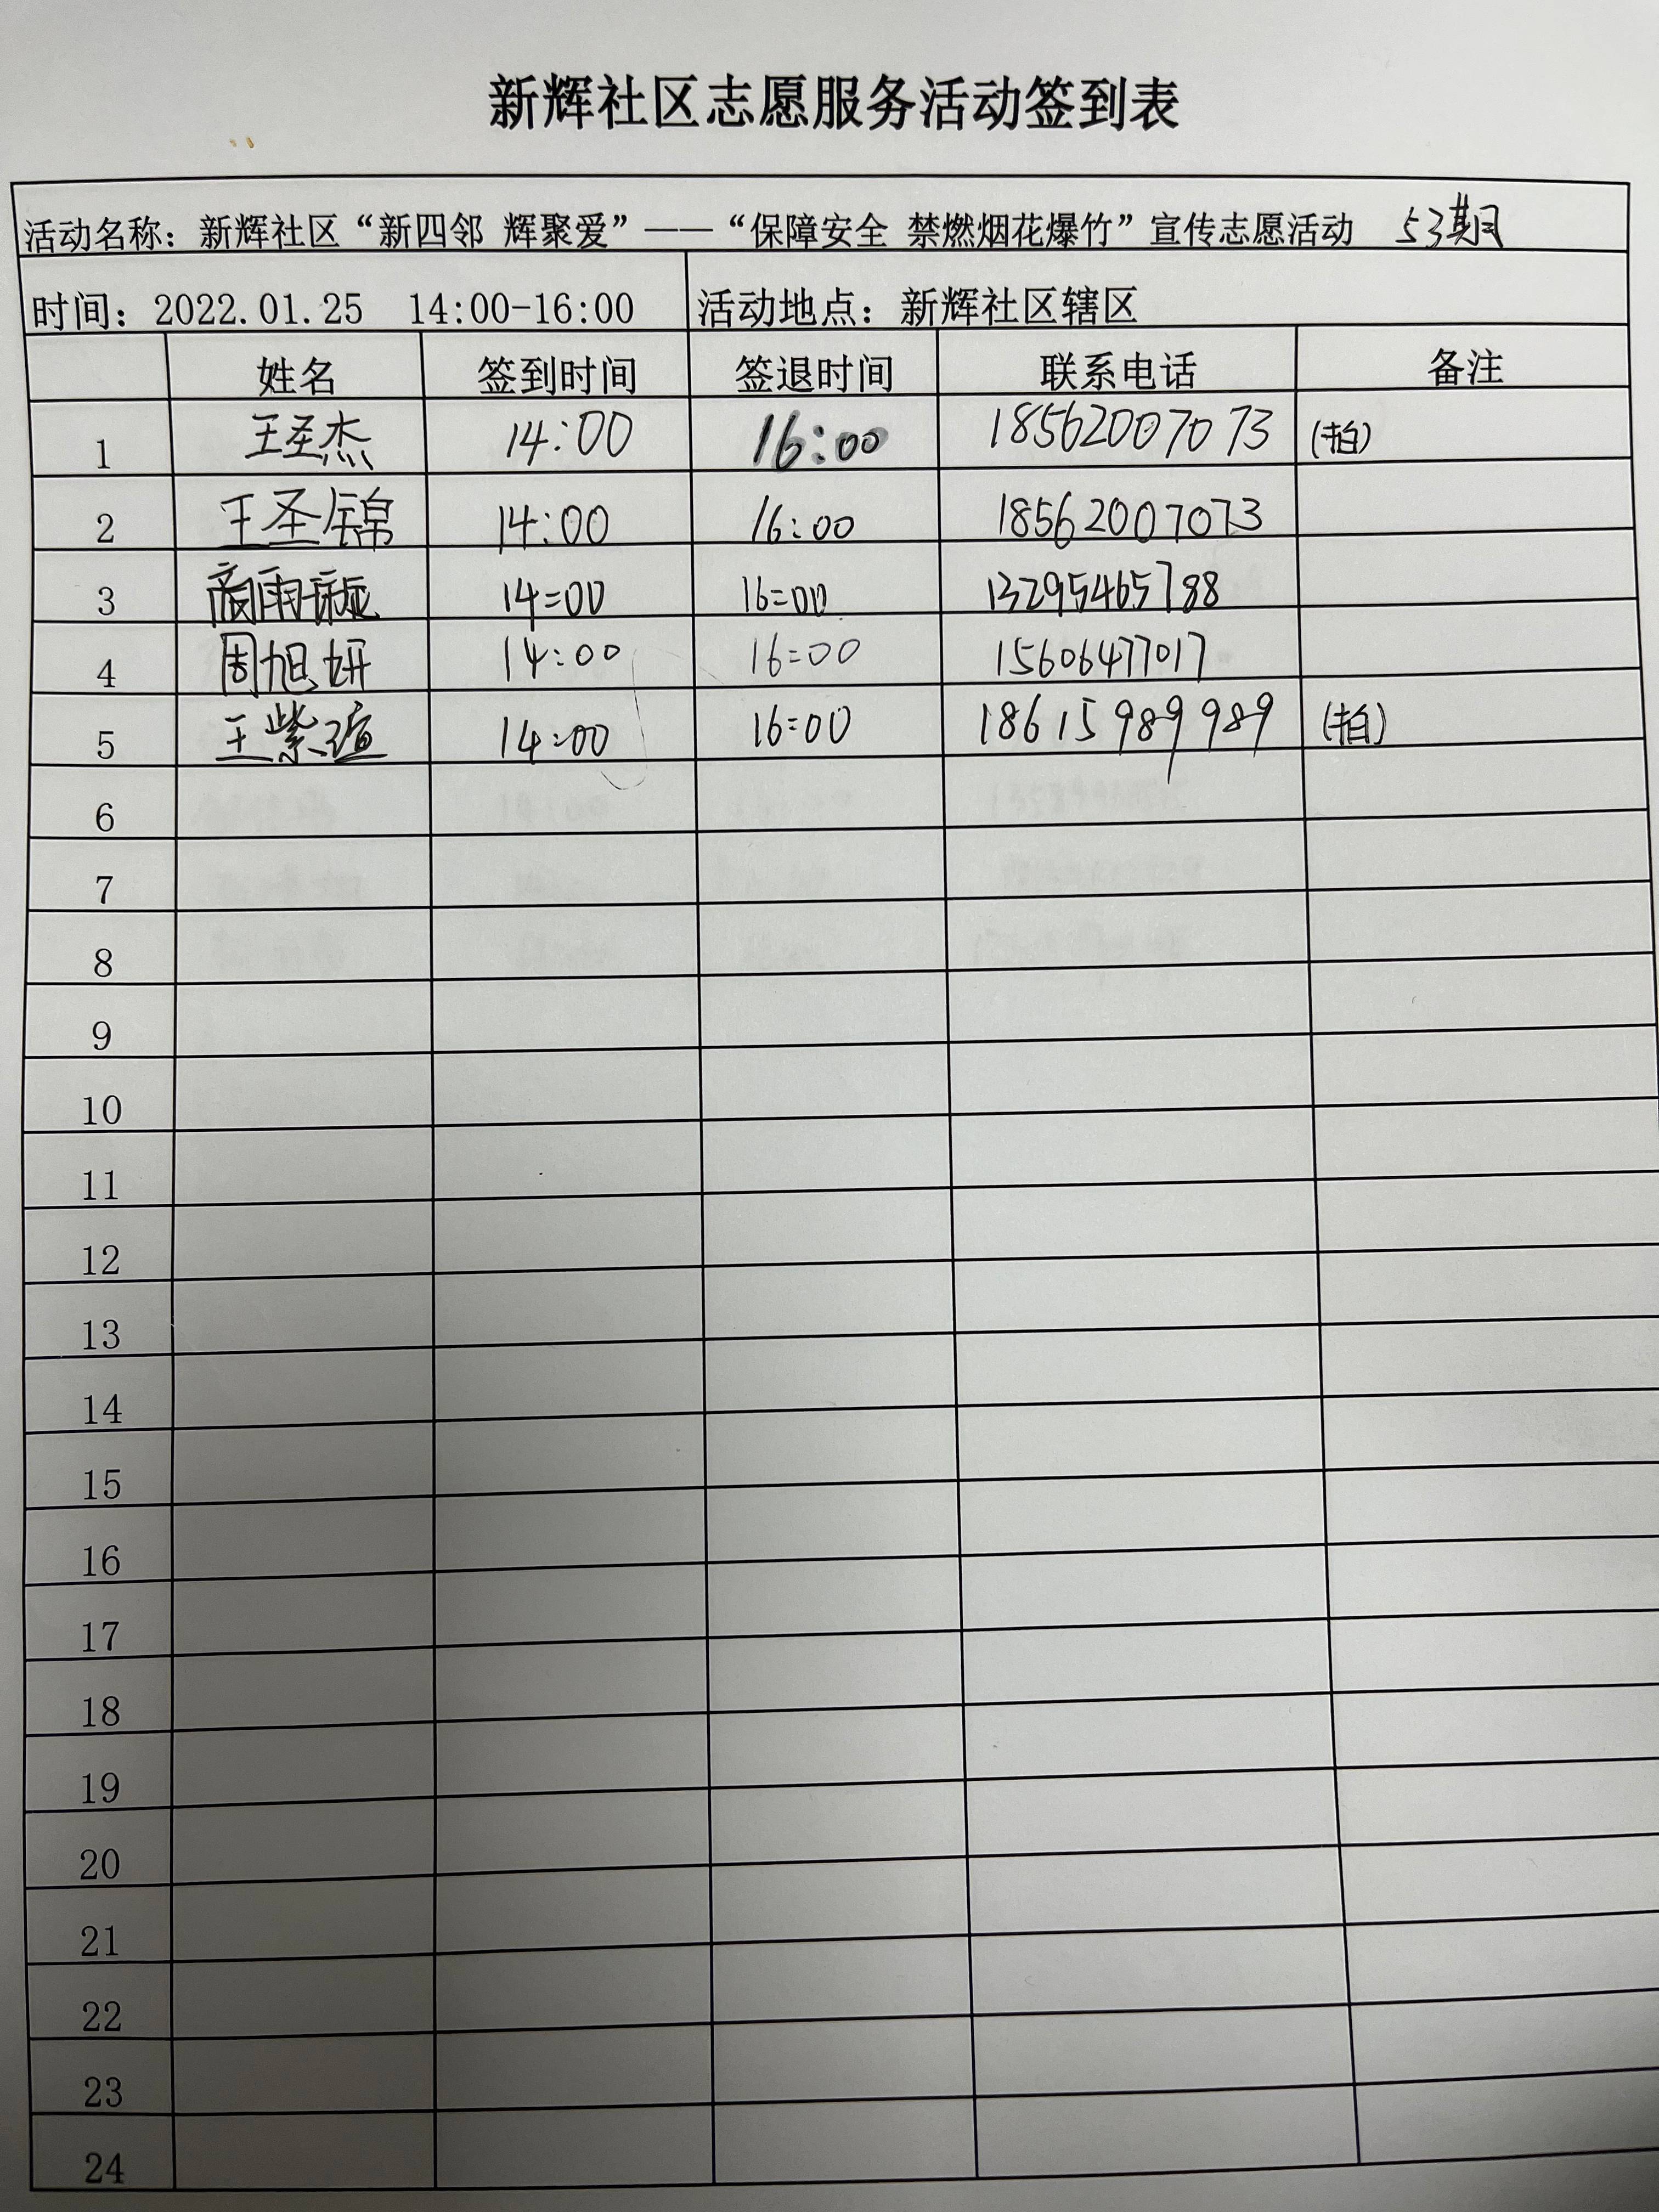 新辉社区志愿服务活动签到表
活动名称：新辉社区“新四邻 辉聚爱”——“保障安全 禁燃烟花爆竹”宣传志愿活动 53期
时间：2022.01.25 14:00-16:00 活动地点：新辉社区辖区
姓名 签到时间 签退时间 联系电话 备注
1 王圣杰 14:00 16:00 18562007073 (拍)
2 王圣锦 14:00 16:00 18562007073
3 14=00 16=00 13295465788
4 周旭妍 14:00 16=00 15606477017
5 王紫瑄 14:00 16:00 18615989989 (拍)
6
7
8
9
10
11
12
13
14
15
16
17
18
19
20
21
22
23
24